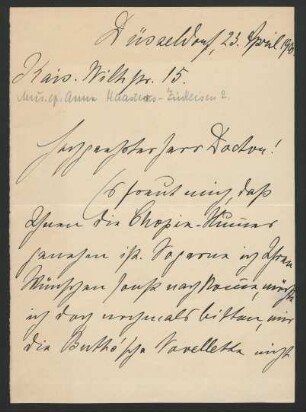 Düsseldorf, 23. April
Kais. Wilh str. 15.
Mus. ep. Anna Haasters-Zinkeisen ?
Hochverehrter Herr Doctor!
Es freut mich, daß
Ihnen die Chopin-Nummer
genehm ist. So gerne ich Ihren
Wünschen sonst nachkomme, möchte
ich doch nochmals bitten, mir
die Buths'sche Novellette nicht